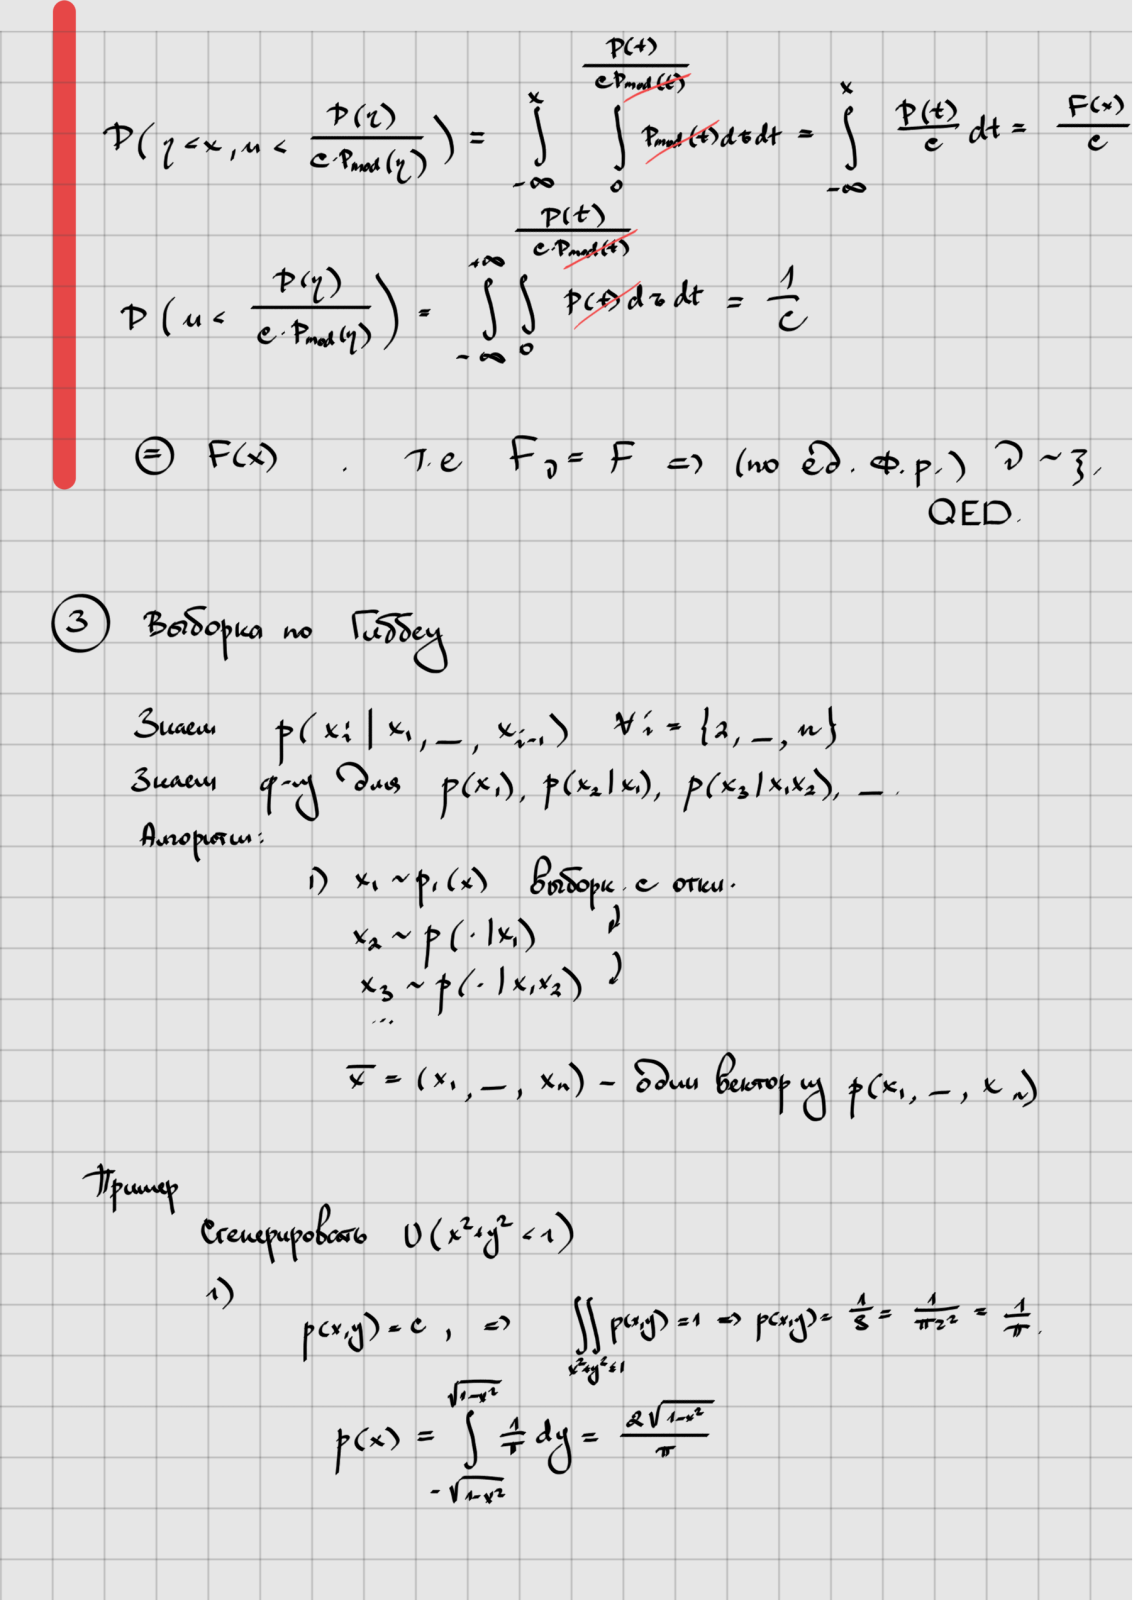 P(η<x, u< p(η)/(c·p_mod(η))) = ∫_{-∞}^{x} ∫_{0}^{p(t)/(c p_mod(t))} p_mod(t) dτ dt = ∫_{-∞}^{x} p(t)/c dt = F(x)/c
P(u< p(η)/(c·p_mod(η))) = ∫_{-∞}^{+∞} ∫_{0}^{p(t)/(c·p_mod(t))} p(t) dτ dt = 1/c
⊜ F(x) . Т.е F_ν = F => (по ед. ф.р.) ν ~ ξ.
QED.
3 Выборка по Гиббсу
Знаем p(x_i | x_1, _, x_{i-1}) ∀i = {2, _, n}
Знаем ф-лу для p(x_1), p(x_2|x_1), p(x_3|x_1x_2), _ .
Алгоритм:
1) x_1 ~ p_1(x) выборк. с откл.
x_2 ~ p(·|x_1)
x_3 ~ p(·|x_1x_2)
...
x̄ = (x_1, _, x_n) - один вектор из p(x_1, _, x_n)
Пример
Сгенерировать U(x²+y² < 1)
1)
p(x,y) = c, => ∬_{x²+y²≤1} p(x,y) = 1 => p(x,y) = 1/S = 1/(πr²) = 1/π.
p(x) = ∫_{-√(1-x²)}^{√(1-x²)} 1/π dy = 2√(1-x²)/π